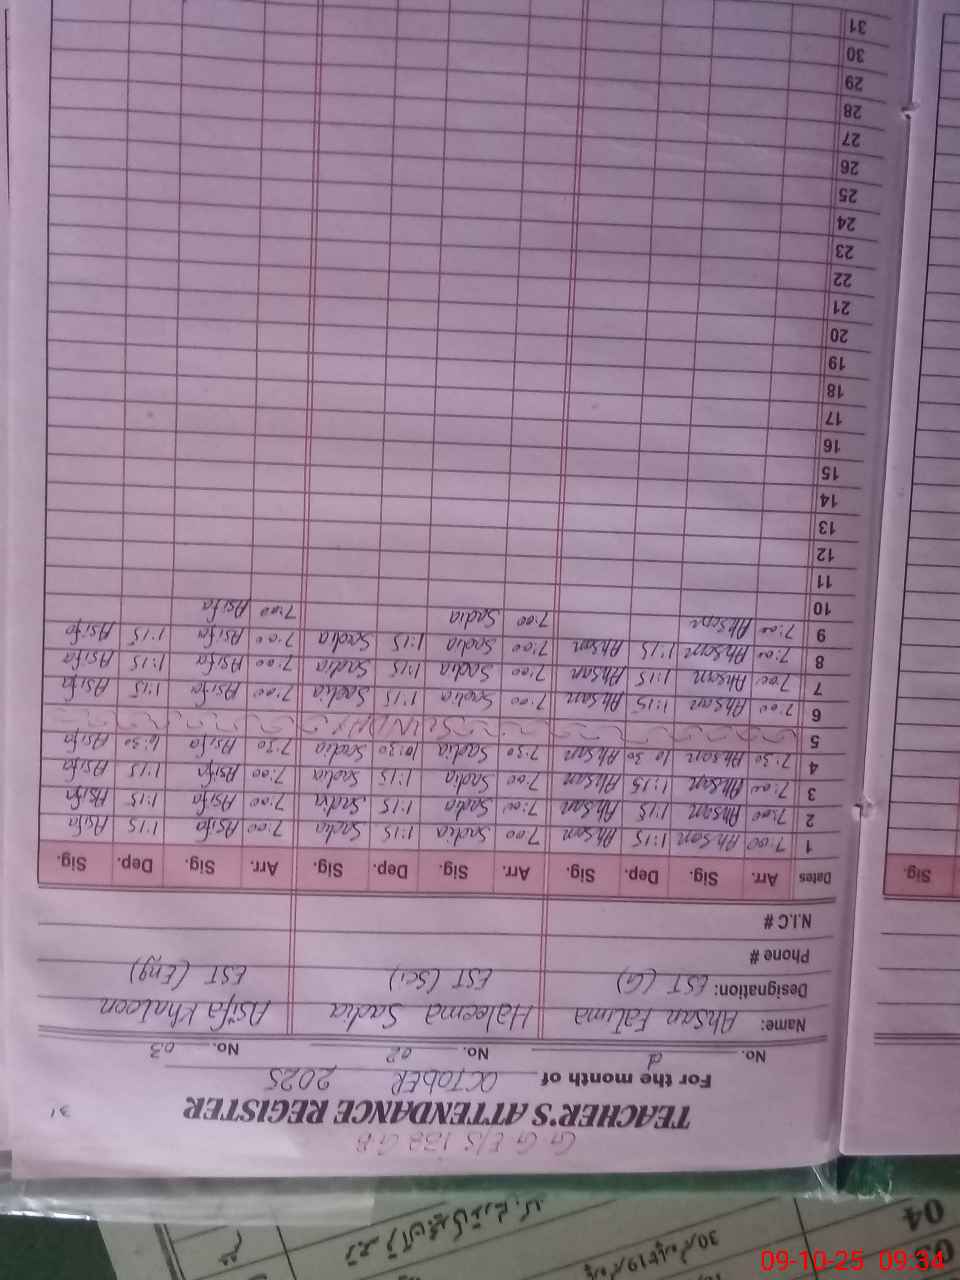 G.G.E/S 132 G.B
TEACHER'S ATTENDANCE REGISTER 31
For the month of OCTOBER 2025
No. No. 02 No. 03
Name: Ahsan Fatima Haleema Sadia Asifa Khatoon
Designation: EST (G) EST (Sci) EST (Eng)
Phone #
N.I.C #
Dates Arr. Sig. Dep. Sig. Arr. Sig. Dep. Sig. Arr. Sig. Dep. Sig.
1 7:00 Ahsan 1:15 Ahsan 7:00 Sadia 1:15 Sadia 7:00 Asifa 1:15 Asifa
2 7:00 Ahsan 1:15 Ahsan 7:00 Sadia 1:15 Sadia 7:00 Asifa 1:15 Asifa
3 7:00 Ahsan 1:15 Ahsan 7:00 Sadia 1:15 Sadia 7:00 Asifa 1:15 Asifa
4 7:30 Ahsan 10:30 Ahsan 7:30 Sadia 10:30 Sadia 7:30 Asifa Asifa
5 SUNDAY
6 7:00 Ahsan 1:15 Ahsan 7:00 Sadia 1:15 Sadia 7:00 Asifa 1:15 Asifa
7 7:00 Ahsan 1:15 Ahsan 7:00 Sadia 1:15 Sadia 7:00 Asifa 1:15 Asifa
8 7:00 Ahsan 1:15 Ahsan 7:00 Sadia 1:15 Sadia 7:00 Asifa 1:15 Asifa
9 7:00 Ahsan 7:00 Sadia 7:00 Asifa
10
11
12
13
14
15
16
17
18
19
20
21
22
23
24
25
26
27
28
29
30
31
Sig.
04
09-10-25 09:34